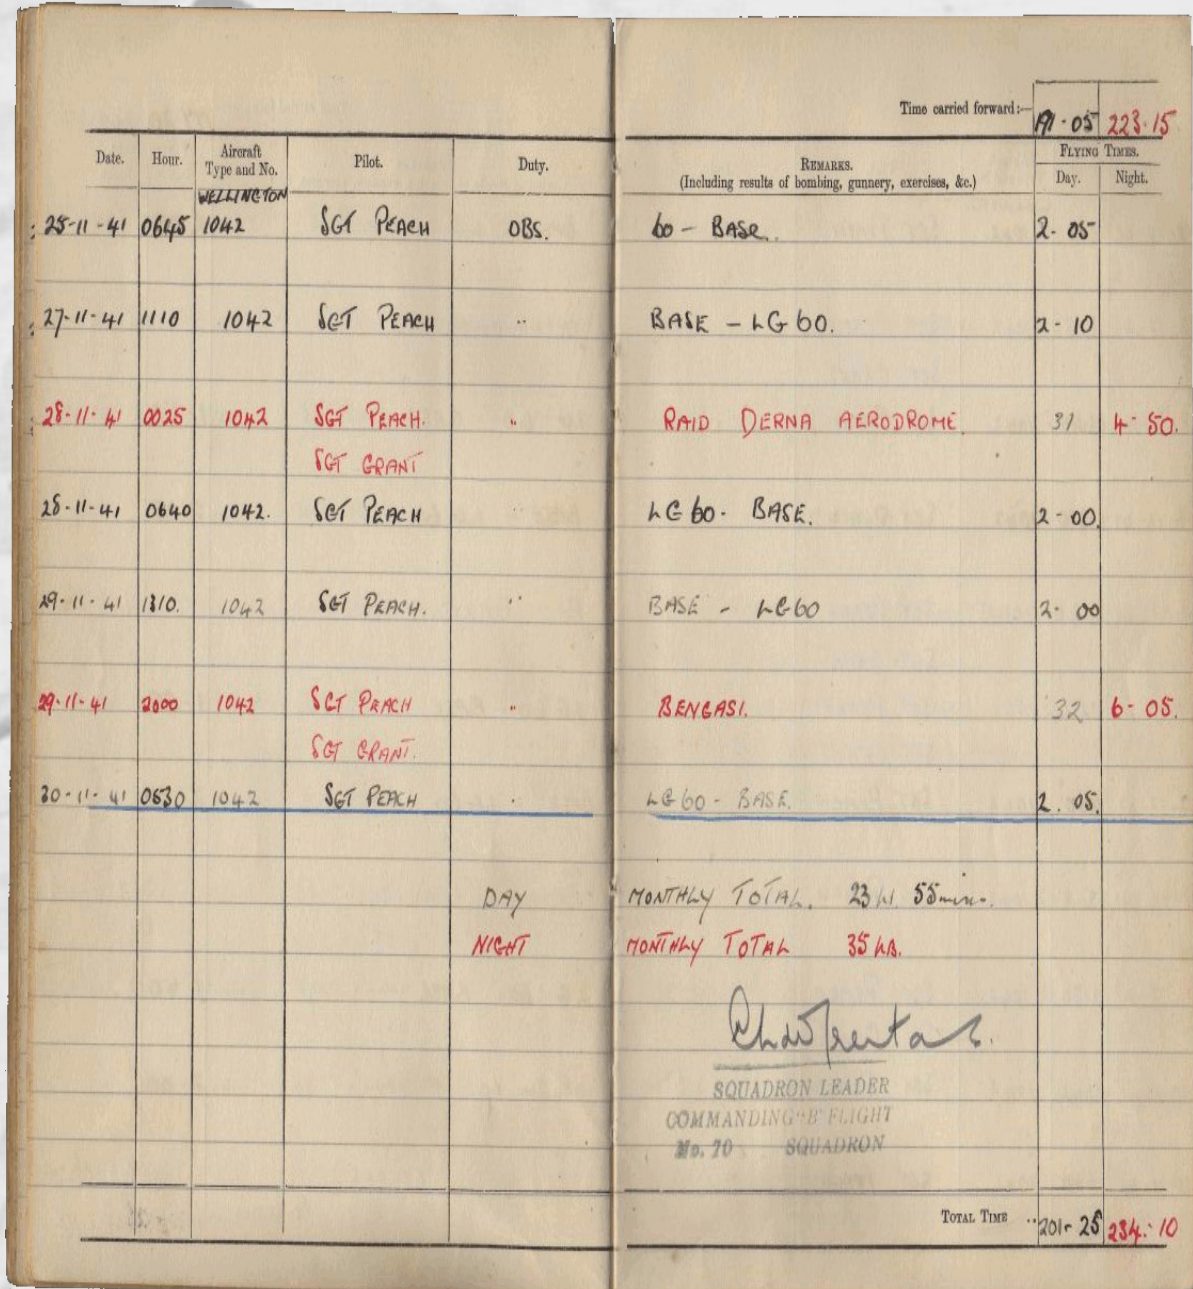 Time carried forward:— 191·05 223·15
Date. Hour. Aircraft Type and No. Pilot. Duty. REMARKS. (Including results of bombing, gunnery, exercises, &c.) FLYING TIMES. Day. Night.
WELLINGTON
25-11-41 0645 1042 SGT PEACH OBS. 60 - BASE. 2-05
27-11-41 1110 1042 SGT PEACH " BASE - LG 60. 2-10
28-11-41 0025 1042 SGT PEACH. " RAID DERNA AERODROME. 31 4-50.
SGT GRANT
28-11-41 0640 1042. SGT PEACH " LG 60- BASE. 2-00.
29-11-41 1310. 1042 SGT PEACH. " BASE - LG60 2-00
29-11-41 2000 1042 SGT PEACH " BENGASI. 32 6-05.
SGT GRANT.
30-11-41 1042 SGT PEACH " LG60 - BASE. 2.05.
DAY MONTHLY TOTAL. 23 hr. 55mins.
NIGHT MONTHLY TOTAL 35 hrs.
SQUADRON LEADER
COMMANDING "B" FLIGHT
No. 70 SQUADRON
TOTAL TIME .. 201-25 234.10